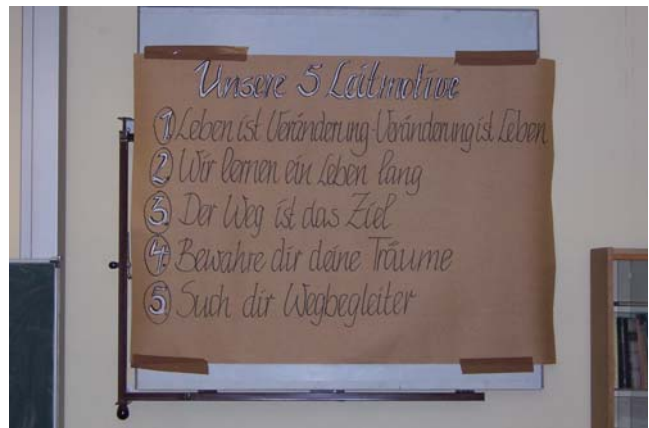 Unsere 5 Leitmotive
1. Leben ist Veränderung-Veränderung ist Leben
2. Wir lernen ein Leben lang
3. Der Weg ist das Ziel
4. Bewahre dir deine Träume
5. Such dir Wegbegleiter